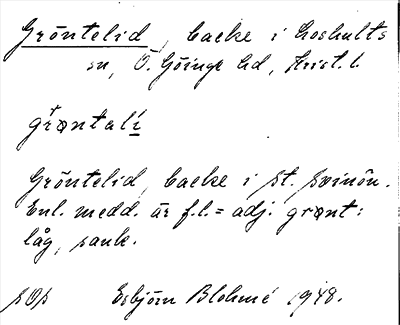 Gröntelid, backe i Loshults
sn, Ö. Göinge hd, Krist. l.
grøntalí
Gröntelid, backe i st. Svinön.
Enl. medd. är f.l. = adj. grønt:
låg, sank.
SOS Esbjörn Blohmé 1948.